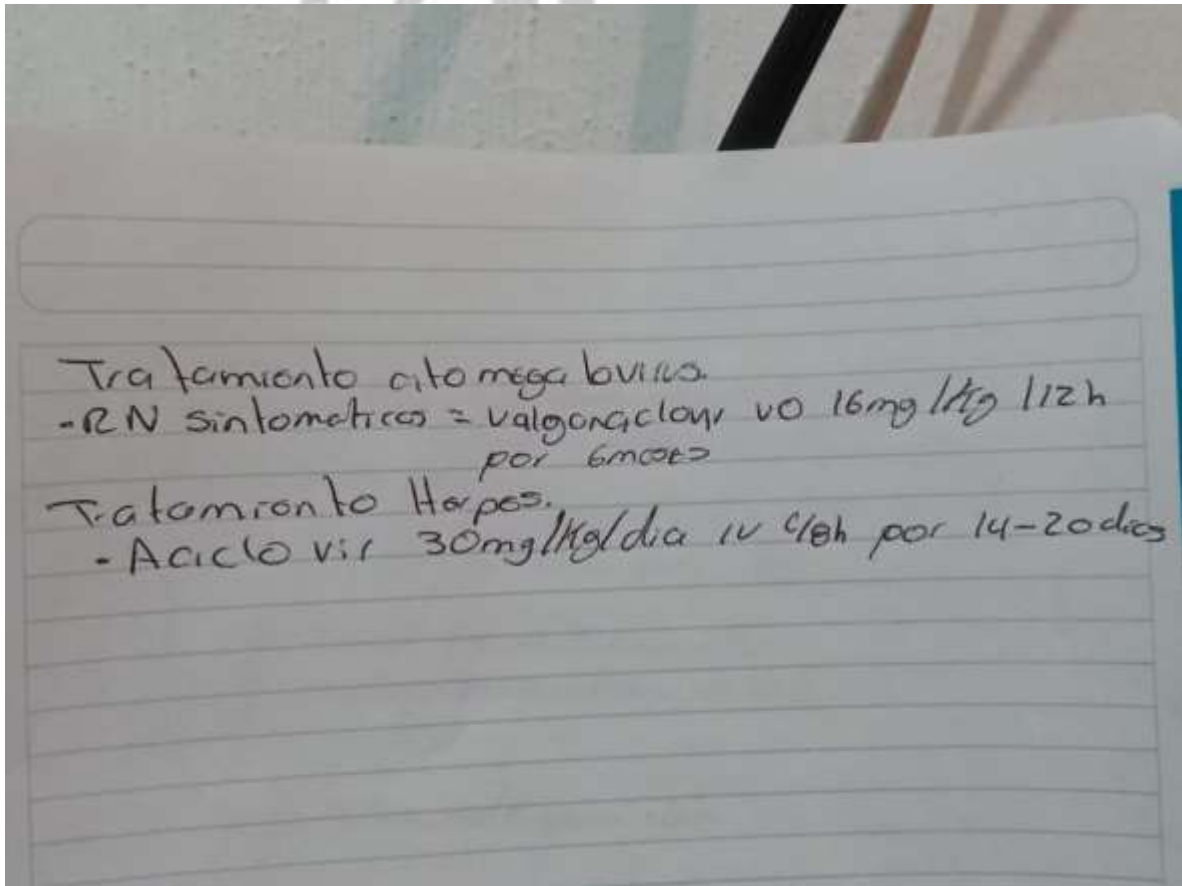 Tratamiento citomegalovirus.
-RN sintomaticos = valganciclovir VO 16mg/Kg/12h
por 6meses
Tratamiento Herpes.
- Aciclovir 30mg/Kg/dia IV c/8h por 14-20dias